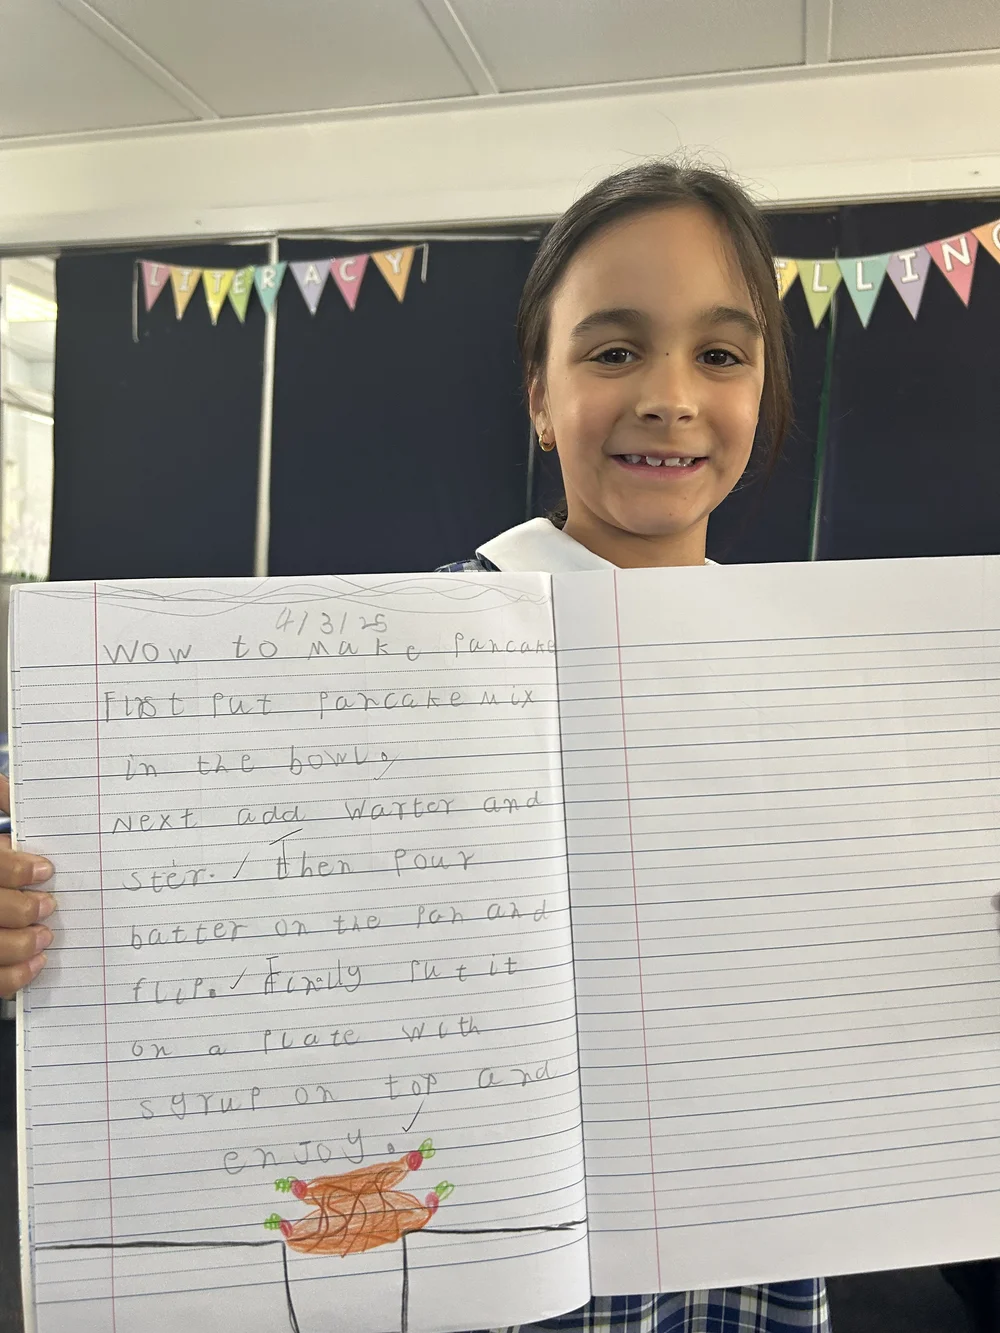 LITERACY
ELLING
4/3/25
WOW to Make Pancake
First Put Pancake Mix
in the bowl.
Next add warter and
ster. Then Pour
batter on the Pan and
flip. Finally Put it
on a Plate with
syrup on top and
enJoy.